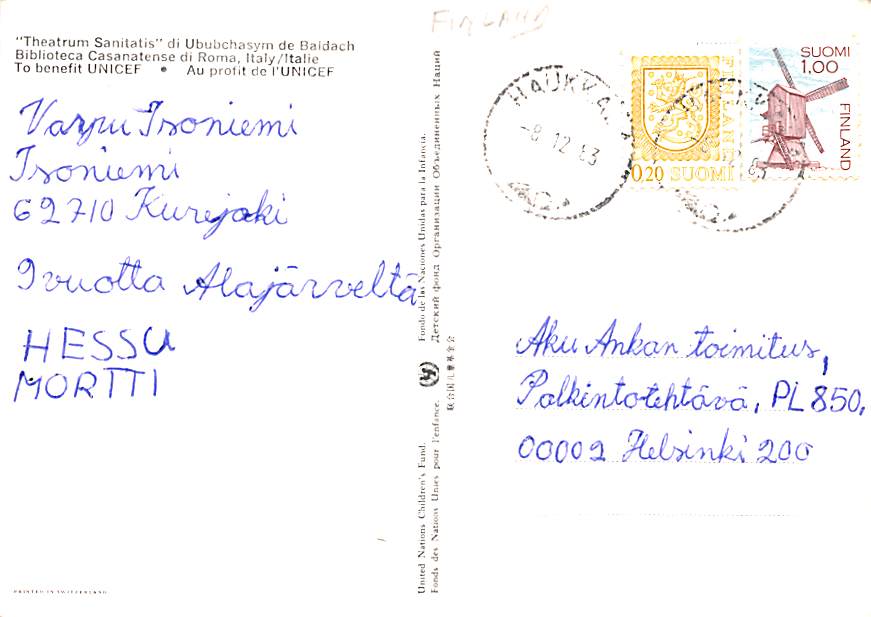 "Theatrum Sanitatis" di Ububchasym de Baldach
Biblioteca Casanatense di Roma, Italy/Italie
To benefit UNICEF • Au profit de l'UNICEF
Varpu Isoniemi
Isoniemi
62710 Kurejoki
9 vuotta Alajärveltä
HESSU
MORTTI
PRINTED IN SWITZERLAND
United Nations Children's Fund.
Fonds des Nations Unies pour l'enfance.
Fondo de las Naciones Unidas para la Infancia.
Детский фонд Организации Объединенных Наций
联合国儿童基金会
FINLAND
-8.12.83
FINLAND
0,20 SUOMI
SUOMI
1,00
FINLAND
Aku Ankan toimitus,
Palkintotehtävä, PL 850,
00002 Helsinki 200